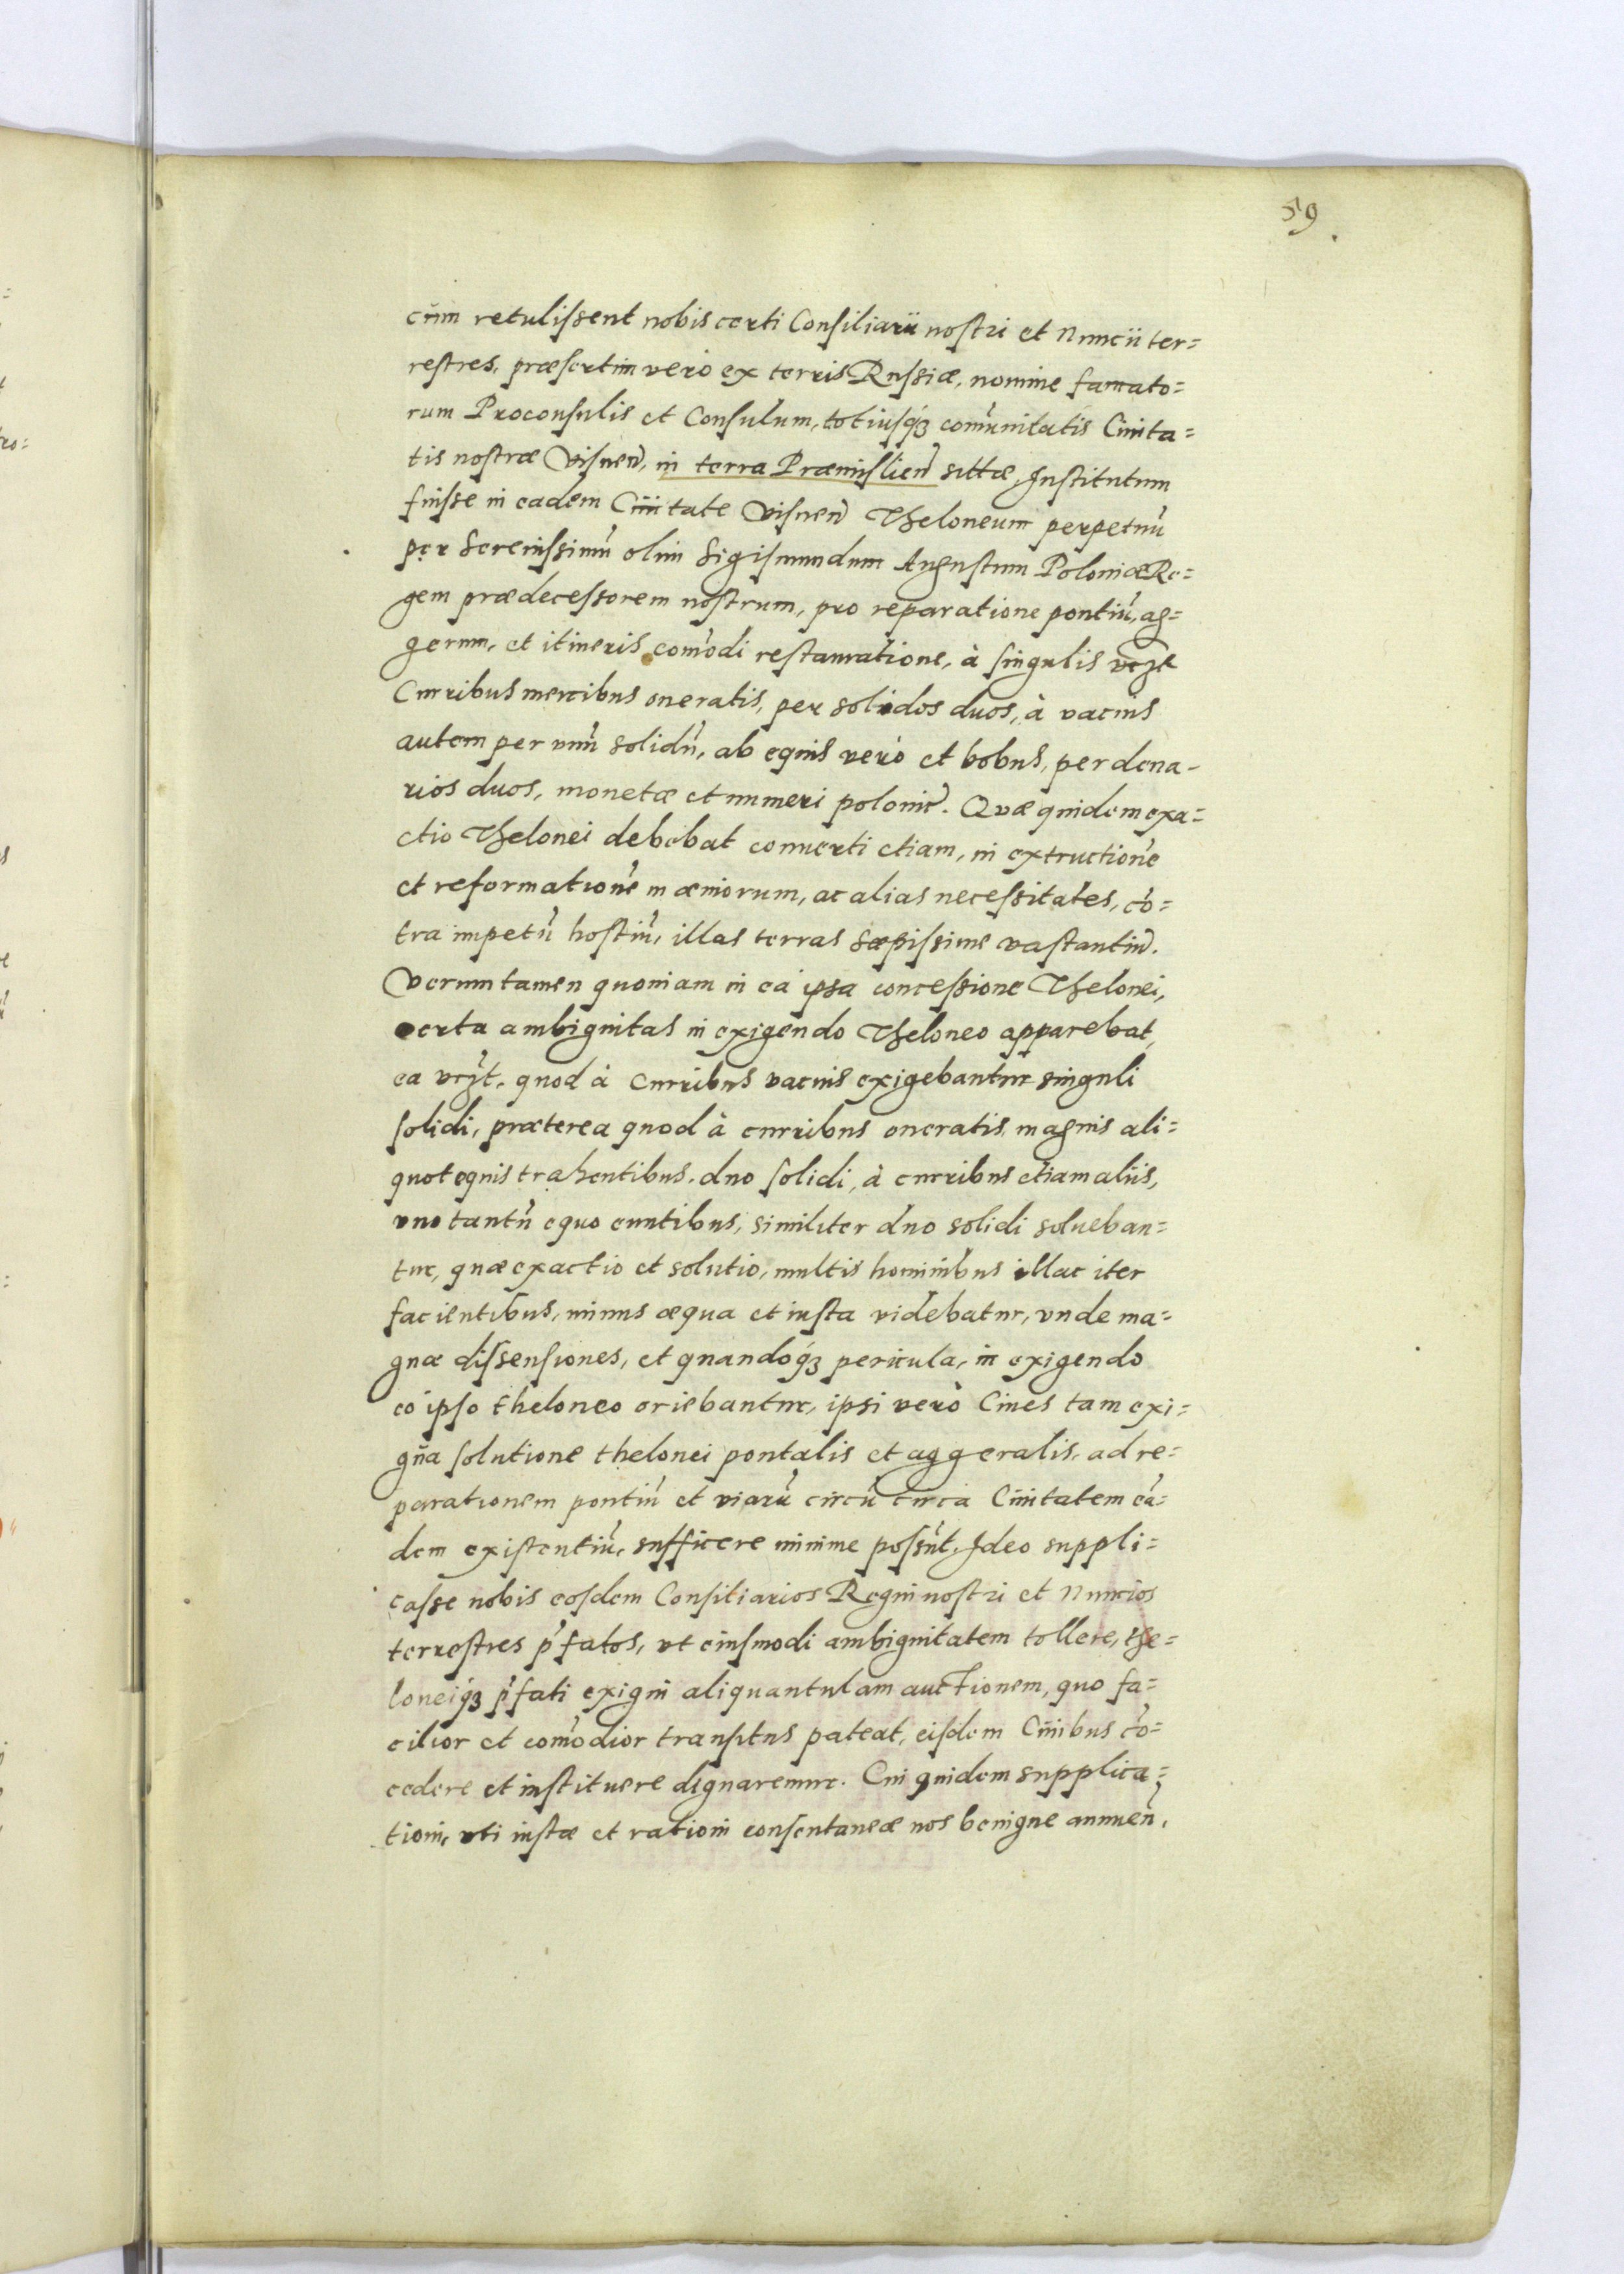 59.
cum retulissent nobis certi Consiliarii nostri et Nuncii ter=
restres, præsertim verò ex terris Russiæ, nomine famato=
rum Proconsulis et Consulum, totiusq́ʒ com̃unitatis Ciuita=
tis nostræ Visnen̄, in terra Præmislien̄ sittæ, Institutum
fuisse in eadem Ciuitate Visnen̄ Theloneum perpetuū
per Serenissimū olim Sigismundum Augustum Poloniæ Re=
gem prædecessorem nostrum, pro reparatione pontiū, ag=
gerum, et itineris com̃odi restauratione, à singulis
Curribus mercibus oneratis, per solidos duos, à vacuis
autem per vnū solidū, ab equis verò et bobus, per dena-
rios duos, monetæ et numeri polonic̄. Quæ quidem exa=
ctio Thelonei debebat conuerti etiam, in extructionē
et reformationē mæniorum, ac alias necessitates, cō=
tra impetū hostiū, illas terras sæpissime vastantiū.
Veruntamen quoniam in ea ipsa concessione Thelonei,
certa ambiguitas in exigendo Theloneo apparebat,
ea vcʒt. quod à curribus vacuis exigebantur singuli
solidi, præterea quod à curribus oneratis, magnis ali=
quot equis trahentibus, duo solidi, à curribus etiam aliis,
vno tantū equo euntibus, similiter duo solidi solueban=
tur, quæ exactio et solutio, multis hominibus illac iter
facientibus, minus æqua et iusta videbatur, vnde ma=
gnæ dissensiones, et quandoq́ʒ pericula, in exigendo
eo ipso theloneo oriebantur, ipsi verò Ciues tam exi=
gua solutione thelonei pontalis et aggeralis, ad re=
parationem pontiū et viarū circū circa Ciuitatem eā=
dem existentiū, sufficere minime possūt. Ideo suppli=
casse nobis eosdem Consiliarios Regni nostri et Nuncios
terrestres p̄fatos, vt eiusmodi ambiguitatem tollere, the=
loneiq́ʒ p̄fati exigui aliquantulam auctionem, quo fa=
cilior et com̃odior transitus pateat, eisdem Ciuibus cō=
cedere et instituere dignaremur. Cui quidem supplica=
tioni, vti iustæ et rationi consentaneæ nos benigne annuen̄,